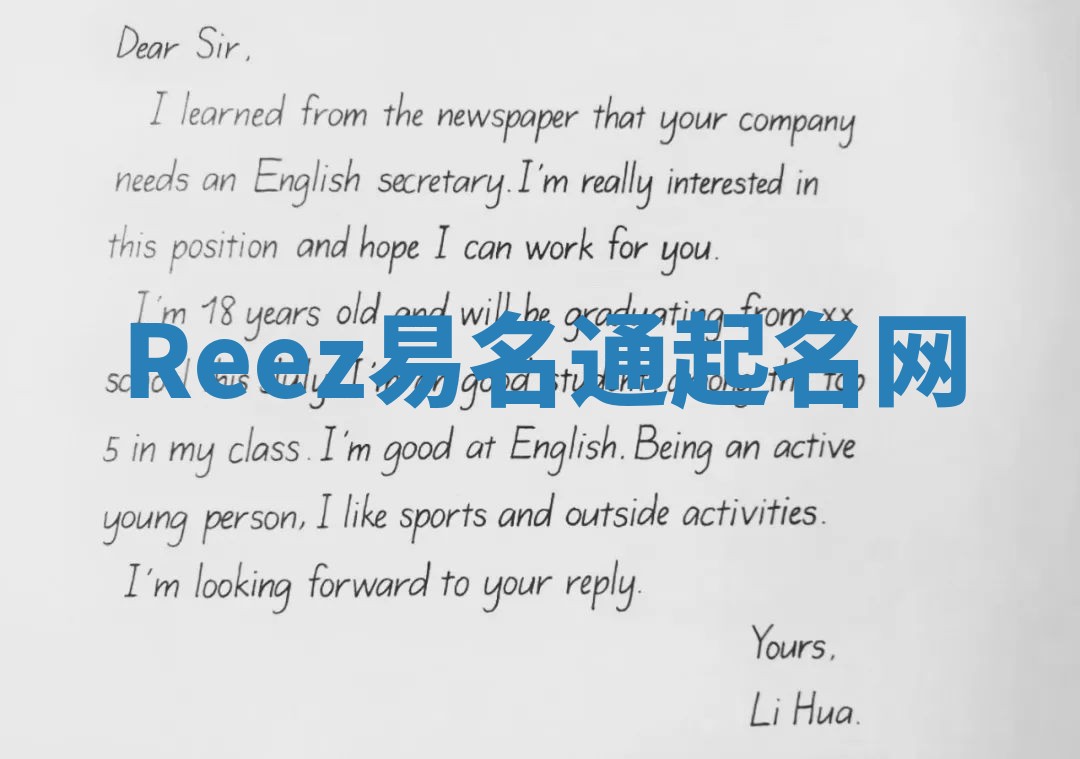 Dear Sir,
I learned from the newspaper that your company
needs an English secretary. I'm really interested in
this position and hope I can work for you.
I'm 18 years old and will be graduating from xx
Reez易名通起名网
this July. I'm good student, among the top
5 in my class. I'm good at English. Being an active
young person, I like sports and outside activities.
I'm looking forward to your reply.
Yours,
Li Hua.